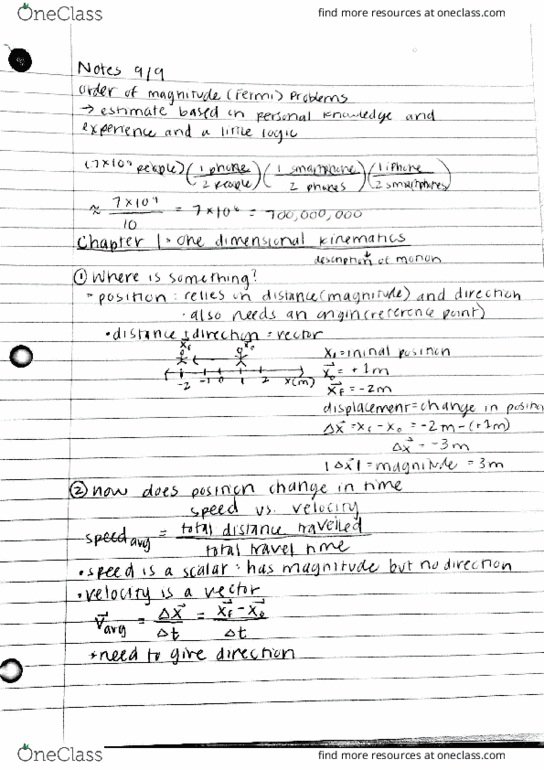 OneClass
find more resources at oneclass.com
Notes 9/9
order of magnitude (Fermi) Problems
→ estimate based on personal knowledge and
experience and a little logic
(7×10⁹ people)(1 phone / 2 people)(1 smartphone / 2 phones)(1 iPhone / 2 smartphones)
≈ 7×10⁹ / 10 = 7×10⁸ = 700,000,000
Chapter 1: One dimensional kinematics
description of motion
① Where is something?
position: relies on distance (magnitude) and direction
• also needs an origin (reference point)
• distance + direction = vector
xf x₀
-2 -1 0 1 2 x(m)
= initial position
x⃗₀ = +1m
x⃗f = -2m
displacement = change in position
Δx⃗ = xf - x₀ = -2m - (+1m)
Δx⃗ = -3m
|Δx⃗| = magnitude = 3m
② how does position change in time
speed vs. velocity
speed avg = total distance travelled / total travel time
• speed is a scalar: has magnitude but no direction
• velocity is a vector
v⃗avg = Δx⃗ / Δt = x⃗f - x⃗₀ / Δt
• need to give direction
OneClass
find more resources at oneclass.com